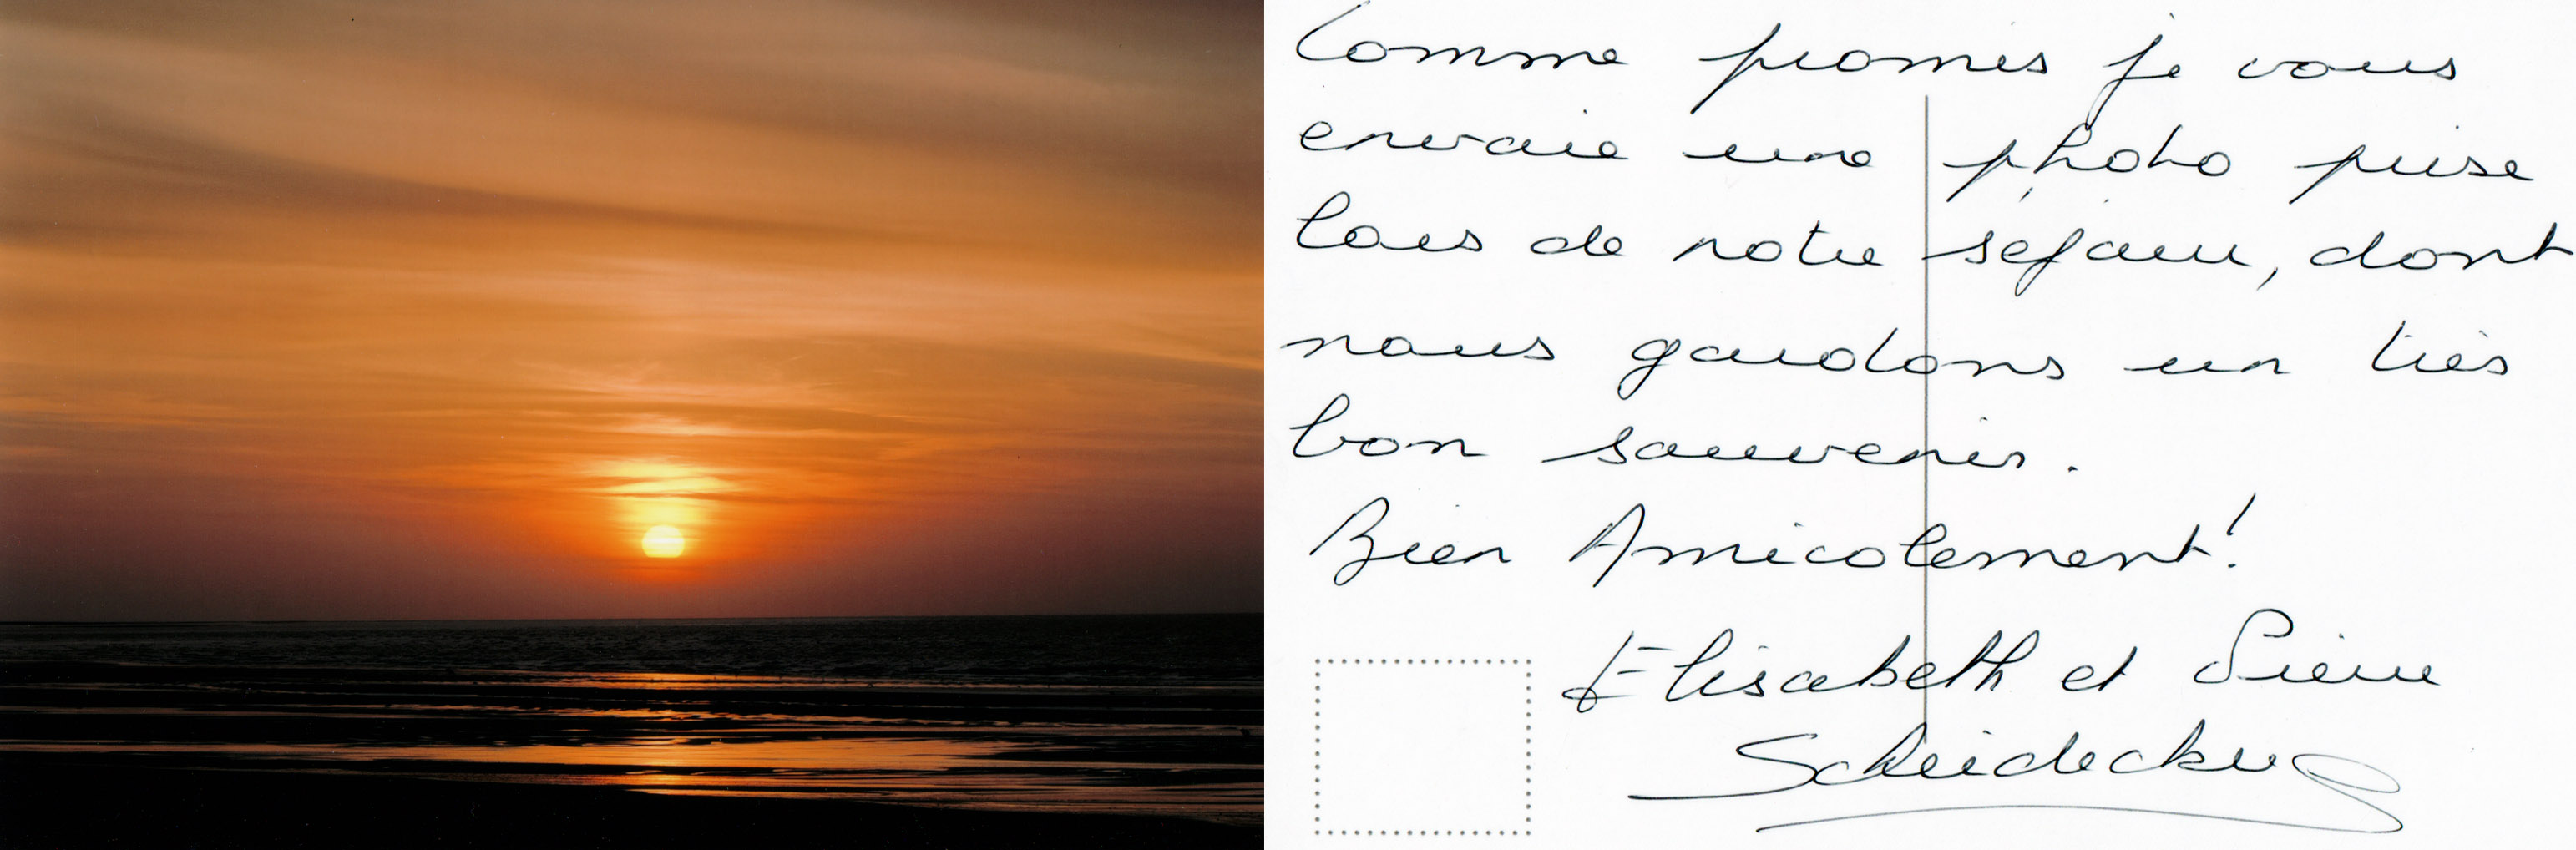 Comme promis je vous
envoie une photo prise
lors de notre séjour, dont
nous gardons un très
bon souvenir.
Bien Amicalement!
Elisabeth et Pierre
Scheidecker